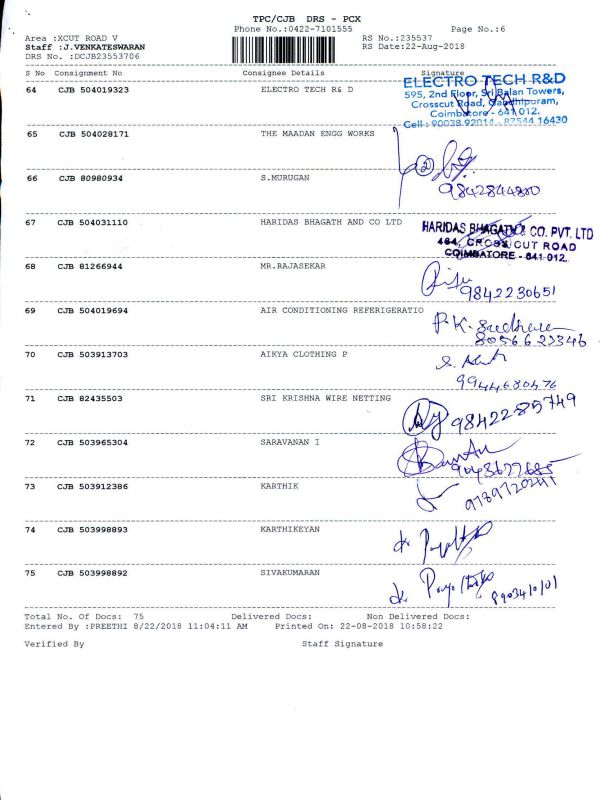 TPC/CJB DRS - PCX
Phone No.:0422-7101555 Page No.:6
Area :XCUT ROAD V RS No.:235537
Staff :J.VENKATESWARAN RS Date:22-Aug-2018
DRS No. :DCJB23553706
S No Consignment No Consignee Details Signature
64 CJB 504019323 ELECTRO TECH R& D
ELECTRO TECH R&D
595, 2nd Floor, Sri Balan Towers,
Crosscut Road, Gandhipuram,
Coimbatore - 641 012.
Cell : 90038 92014 - 87544 16430
65 CJB 504028171 THE MAADAN ENGG WORKS
66 CJB 80980934 S.MURUGAN
9842844880
67 CJB 504031110 HARIDAS BHAGATH AND CO LTD
HARIDAS BHAGATH & CO. PVT. LTD
464, CROSS CUT ROAD
COIMBATORE - 641 012.
68 CJB 81266944 MR.RAJASEKAR
9842230651
69 CJB 504019694 AIR CONDITIONING REFERIGERATIO
8056623346
70 CJB 503913703 AIKYA CLOTHING P
9944680476
71 CJB 82435503 SRI KRISHNA WIRE NETTING
9842285749
72 CJB 503965304 SARAVANAN I
73 CJB 503912386 KARTHIK
74 CJB 503998893 KARTHIKEYAN
75 CJB 503998892 SIVAKUMARAN
Total No. Of Docs: 75 Delivered Docs: Non Delivered Docs:
Entered By :PREETHI 8/22/2018 11:04:11 AM Printed On: 22-08-2018 10:58:22
Verified By Staff Signature